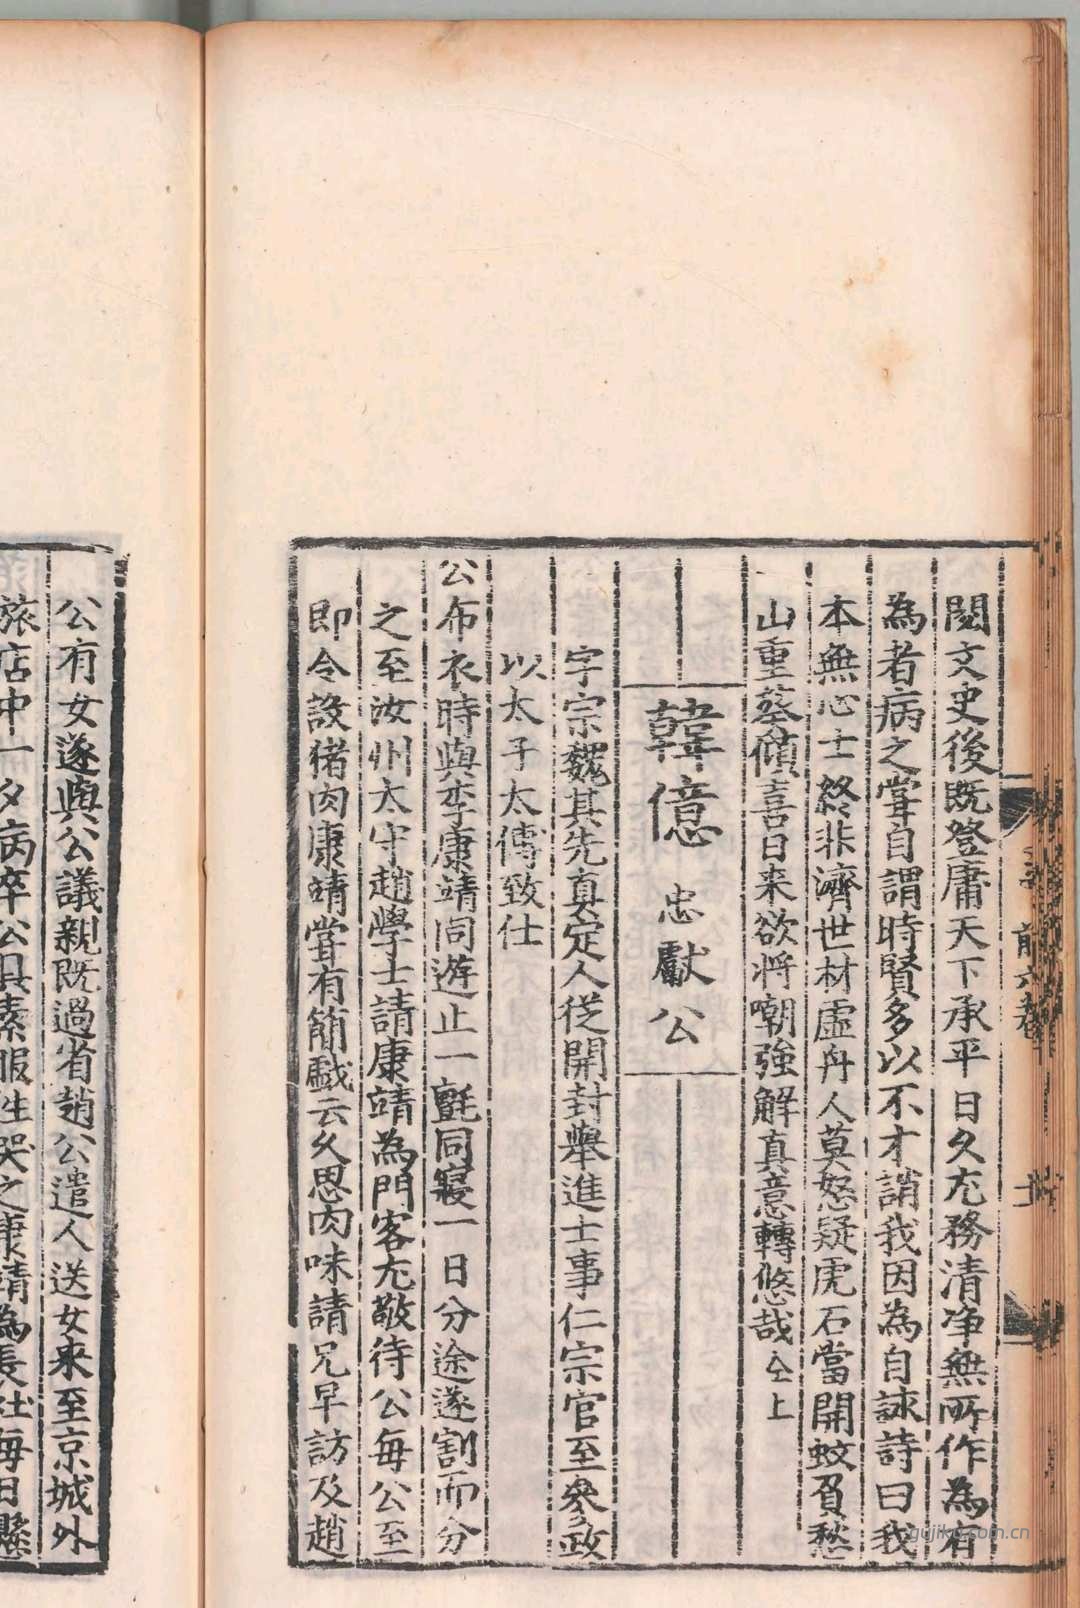 閱文史後既登庸天下承平日久尤務清净無所作為有
為者病之甞自謂時賢多以不才誚我因為自詠詩曰我
本無心士終非濟世材虛舟人莫怒疑虎石當開蚊負愁
山重葵傾喜日来欲将嘲強解真意轉悠哉仝上
韓億 忠獻公
字宗魏其先真定人從開封舉進士事仁宗官至叅政
以太子太傅致仕
公布衣時與李康靖同遊止一氈同寢一日分途遂割而分
之至汝州太守趙學士請康靖為門客尤敬待公每公至
即令設猪肉康靖甞有簡戱云久思肉味請兄早訪及趙
公有女遂與公議親既過省趙公遣人送女来至京城外
旅店中一夕病卒公具素服往哭之康靖為長社每日懸
前六卷
gujike.com.cn